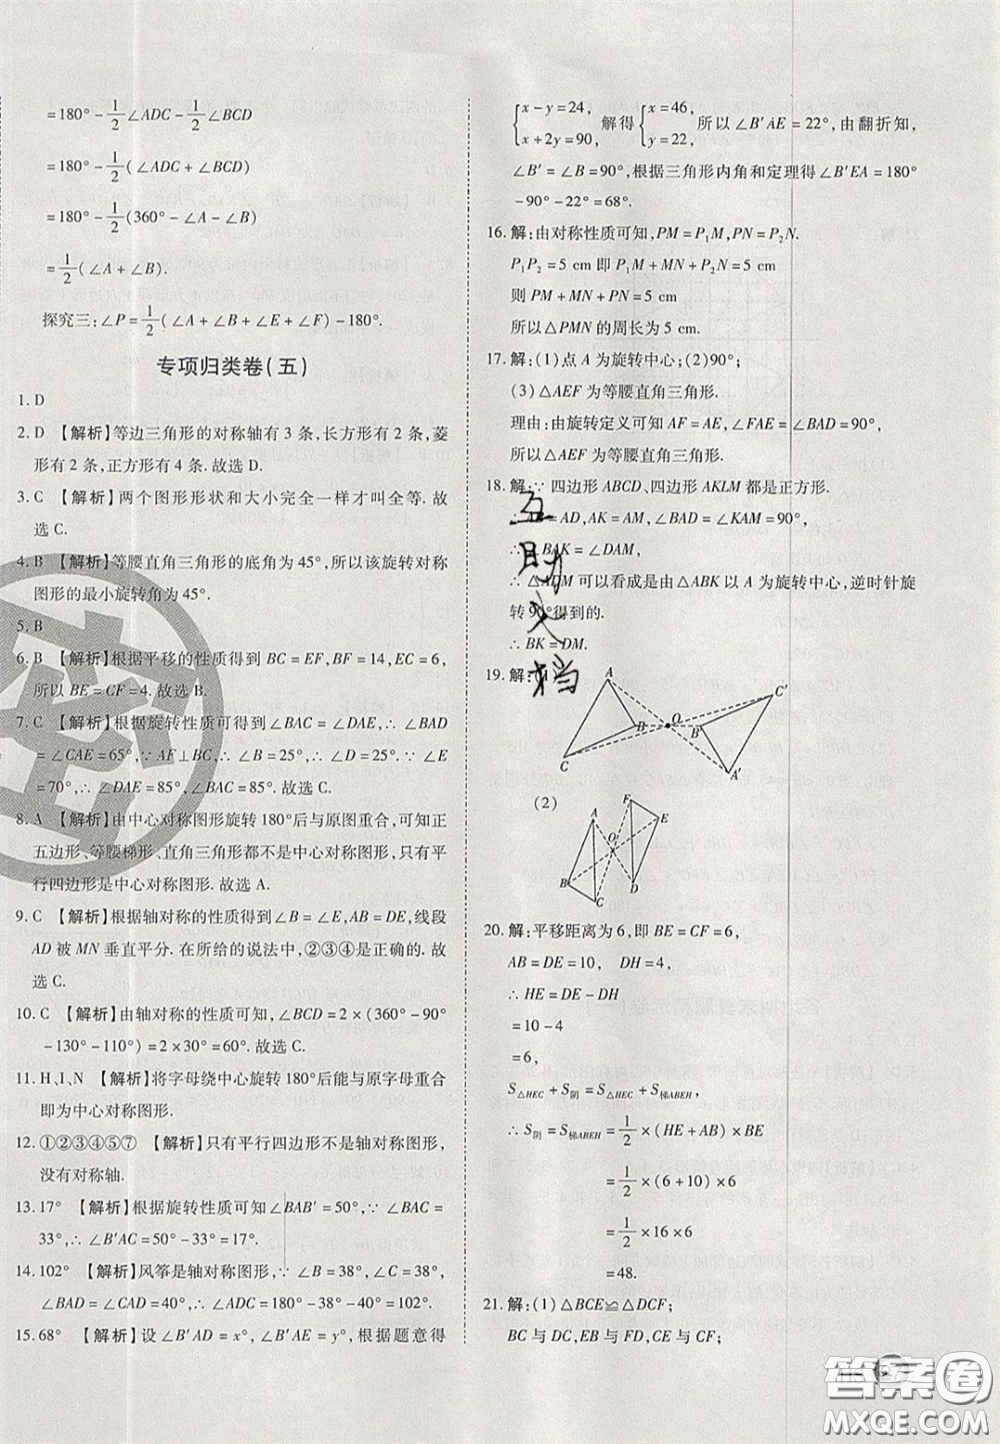 =180°-1/2∠ADC-1/2∠BCD
=180°-1/2(∠ADC+∠BCD)
=180°-1/2(360°-∠A-∠B)
=1/2(∠A+∠B).
探究三:∠P=1/2(∠A+∠B+∠E+∠F)-180°.
专项归类卷(五)
1. D
2. D 【解析】等边三角形的对称轴有 3 条,长方形有 2 条,菱
形有 2 条,正方形有 4 条.故选 D.
3. C 【解析】两个图形形状和大小完全一样才叫全等.故
选 C.
4. B 【解析】等腰直角三角形的底角为 45°,所以该旋转对称
图形的最小旋转角为 45°.
5. B
6. B 【解析】根据平移的性质得到 BC=EF,BF=14,EC=6,
所以 BE=CF=4.故选 B.
7. C 【解析】根据旋转性质可得到∠BAC=∠DAE,∴∠BAD
=∠CAE=65°,∵AF⊥BC,∴∠B=25°,∴∠D=25°,∵∠E
=70°,∴∠DAE=85°,∴∠BAC=85°.故选 C.
8. A 【解析】由中心对称图形旋转 180°后与原图重合,可知正
五边形、等腰梯形、直角三角形都不是中心对称图形,只有平
行四边形是中心对称图形.故选 A.
9. C 【解析】根据轴对称的性质得到∠B=∠E,AB=DE,线段
AD 被 MN 垂直平分.在所给的说法中,②③④是正确的.故
选 C.
10. C 【解析】由轴对称的性质可知,∠BCD=2×(360°-90°
-130°-110°)=2×30°=60°.故选 C.
11. H、I、N 【解析】将字母绕中心旋转 180°后能与原字母重合
即为中心对称图形.
12. ①②③④⑤⑦ 【解析】只有平行四边形不是轴对称图形,
没有对称轴.
13. 17° 【解析】根据旋转性质可知∠BAB′=50°,∵∠BAC=
33°,∴∠B′AC=50°-33°=17°.
14. 102° 【解析】风筝是轴对称图形,∴∠B=38°,∠C=38°,
∠BAD=∠CAD=40°,∴∠ADB=180°-38°-40°=102°.
15. 68° 【解析】设∠B′AD=x°,∠B′AE=y°,根据题意得
{x-y=24, x+2y=90, 解得{x=46, y=22, 所以∠B′AE=22°,由翻折知,
∠B′=∠B=90°,根据三角形内角和定理得∠B′EA=180°
-90°-22°=68°.
16. 解:由对称性质可知,PM=P₁M,PN=P₂N.
P₁P₂=5 cm 即 P₁M+MN+P₂N=5 cm
则 PM+MN+PN=5 cm
所以△PMN 的周长为 5 cm.
17. 解:(1)点 A 为旋转中心;(2)90°;
(3)△AEF 为等腰直角三角形.
理由:由旋转定义可知 AF=AE,∠FAE=∠BAD=90°,
所以△AEF 为等腰直角三角形.
18. 解:∵四边形 ABCD、四边形 AKLM 都是正方形.
=AD,AK=AM,∠BAD=∠KAM=90°,
∴∠BAK=∠DAM,
∴ 可以看成是由△ABK 以 A 为旋转中心,逆时针旋
转 90°得到的.
∴BK=DM.
19. 解:
A C′ O B B′ C A′
(2)
F A E O B D C
20. 解:平移距离为 6,即 BE=CF=6,
AB=DE=10, DH=4,
∴HE=DE-DH
=10-4
=6,
S△HEC+S阴=S△HEC+S梯ABEH
∴S阴=S梯ABEH=1/2×(HE+AB)×BE
=1/2×(6+10)×6
=1/2×16×6
=48.
21. 解:(1)△BCE≌△DCF;
BC 与 DC,EB 与 FD,CE 与 CF;
五
档
答案圈
MXQE.COM